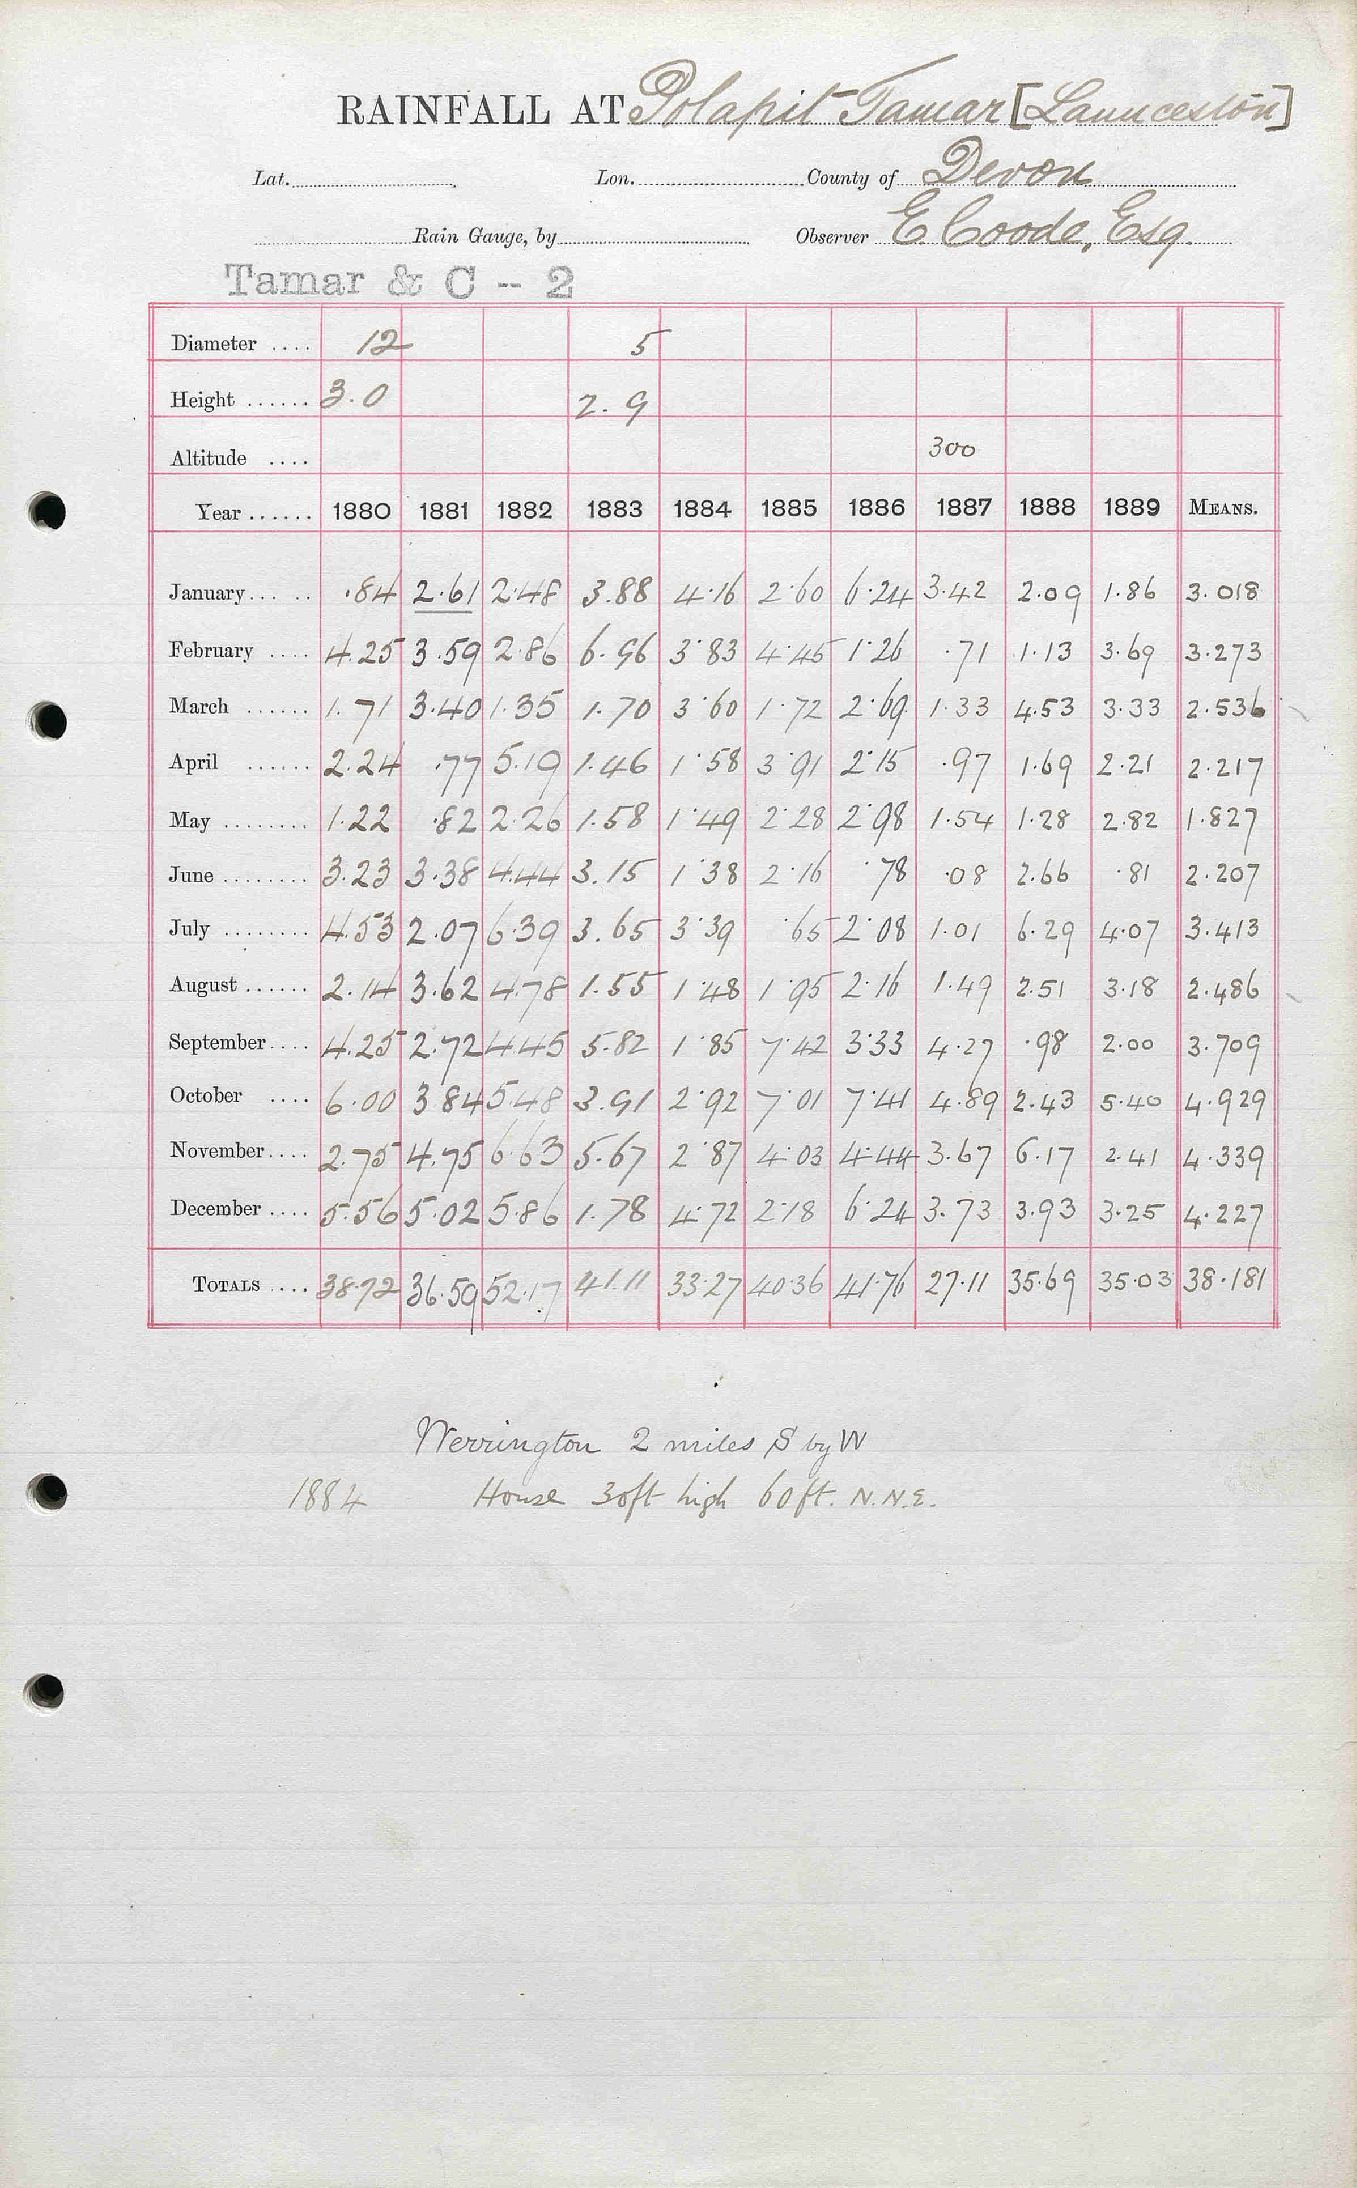 RAINFALL AT Polapit Tamar [Launceston]
Lat. Lon. County of Devon
Rain Gauge, by Observer E Coode, Esq.
Tamar & C -- 2
Diameter .... 12 5
Height ...... 3.0 2.9
Altitude .... 300
Year ...... 1880 1881 1882 1883 1884 1885 1886 1887 1888 1889 MEANS.
January... .. .84 2.61 2.48 3.88 4.16 2.60 6.24 3.42 2.09 1.86 3.018
February .... 4.25 3.59 2.86 6.96 3.83 4.45 1.26 .71 1.13 3.69 3.273
March ...... 1.71 3.40 1.35 1.70 3.60 1.72 2.69 1.33 4.53 3.33 2.536
April ...... 2.24 .77 5.19 1.46 1.58 3.91 2.15 .97 1.69 2.21 2.217
May ........ 1.22 .82 2.26 1.58 1.49 2.28 2.98 1.54 1.28 2.82 1.827
June ........ 3.23 3.38 4.44 3.15 1.38 2.16 .78 .08 2.66 .81 2.207
July ........ 4.53 2.07 6.39 3.65 3.39 .65 2.08 1.01 6.29 4.07 3.413
August ...... 2.14 3.62 4.78 1.55 1.48 1.95 2.16 1.49 2.51 3.18 2.486
September.... 4.25 2.72 4.45 5.82 1.85 7.42 3.33 4.27 .98 2.00 3.709
October .... 6.00 3.84 5.48 3.91 2.92 7.01 7.41 4.89 2.43 5.40 4.929
November.... 2.75 4.75 6.63 5.67 2.87 4.03 4.44 3.67 6.17 2.41 4.339
December .... 5.56 5.02 5.86 1.78 4.72 2.18 6.24 3.73 3.93 3.25 4.227
TOTALS .... 38.72 36.59 52.17 41.11 33.27 40.36 41.76 27.11 35.69 35.03 38.181
Werrington 2 miles S by W
1884 House 30ft high 60ft. N.N.E.